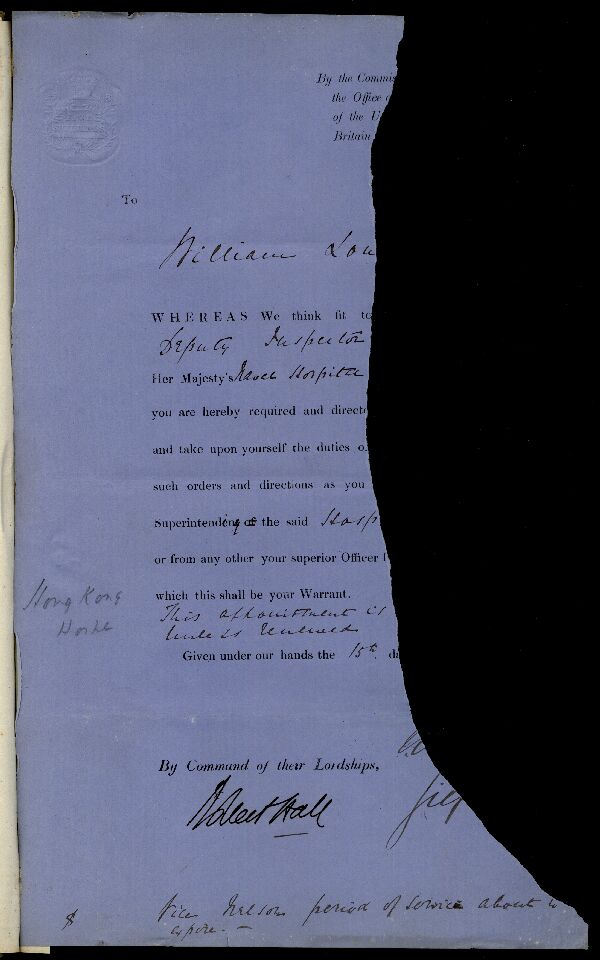 By the Commis
the Office
of the U
Britain
To
William Lou
WHEREAS We think fit to
Deputy Inspector
Her Majesty's Naval Hospital
you are hereby required and directe
and take upon yourself the duties o
such orders and directions as you
Superintending of the said Hosp
or from any other your superior Officer f
which this shall be your Warrant.
This appointment is
unless renewed
Given under our hands the 15th da
Hong Kong
By Command of their Lordships,
Robert Hall
Vice Nelson period of service about to
expire.